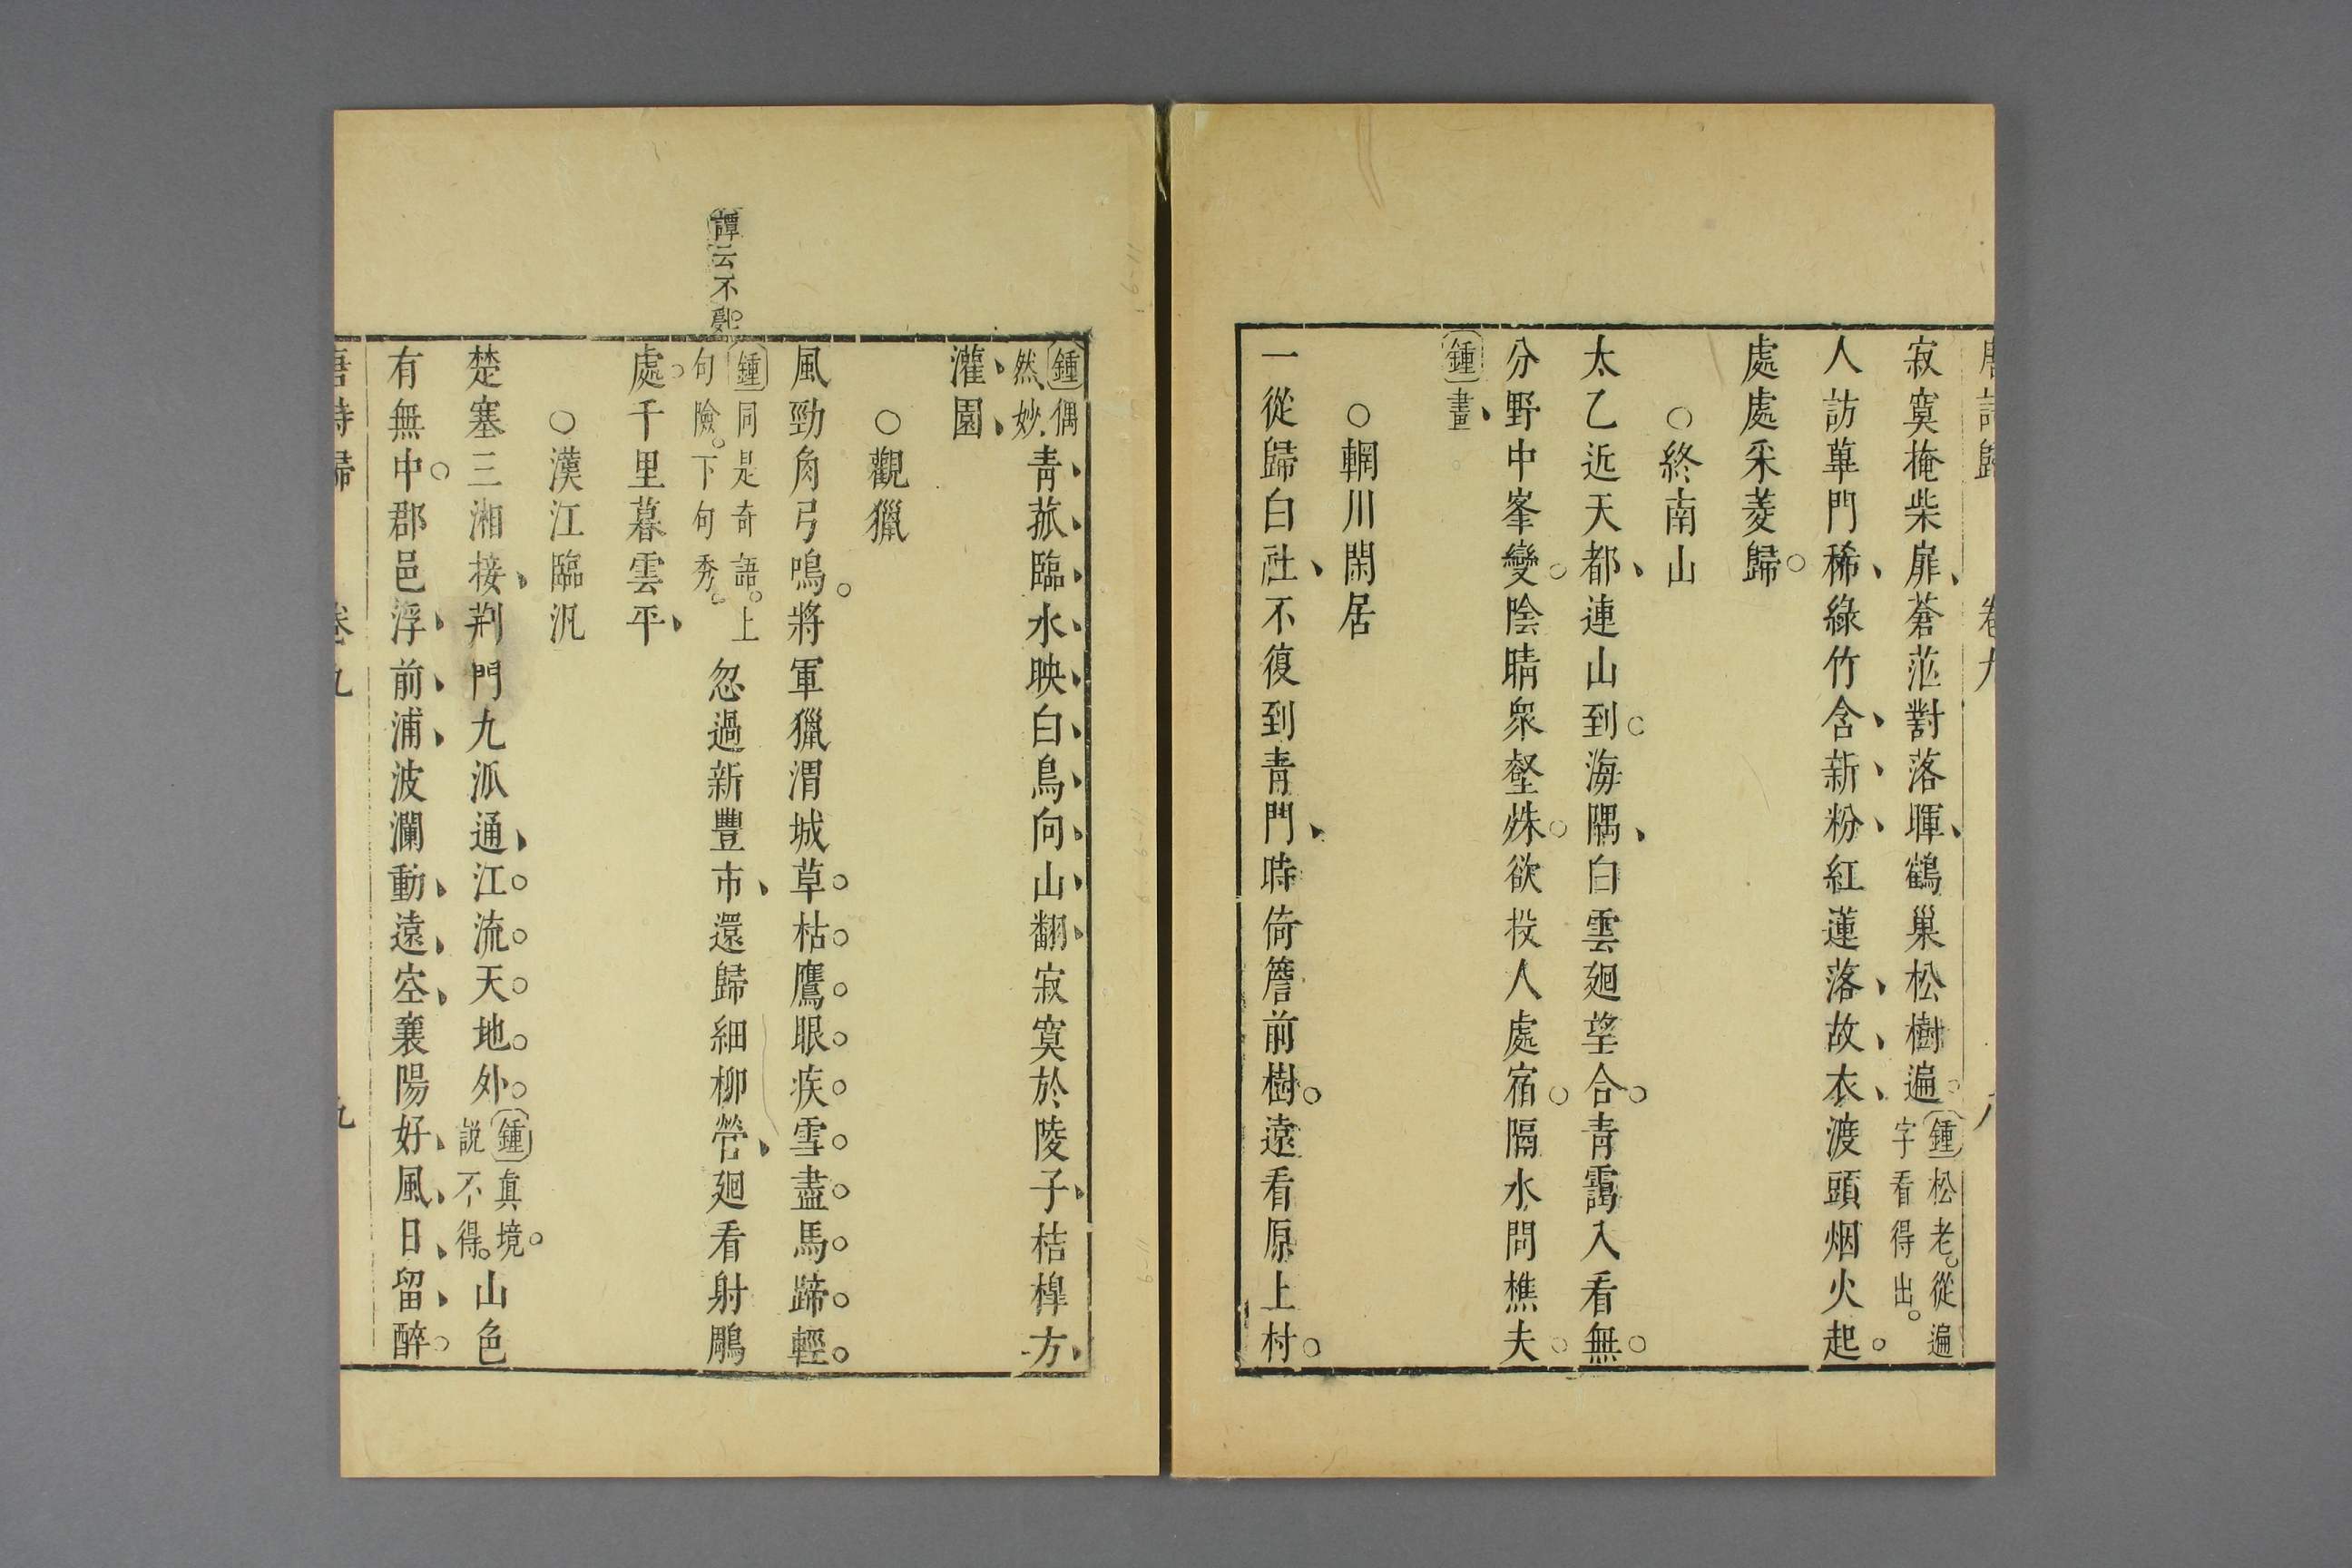 寂寞掩柴扉蒼茫對落暉鶴巢松樹遍鍾松老從遍字看得出
人訪蓽門稀綠竹含新粉紅蓮落故衣渡頭烟火起
處處采菱歸
○終南山
太乙近天都連山到海隅白雲廻望合青靄入看無
分野中峯變陰晴衆壑殊欲投人處宿隔水問樵夫
鍾畫
○輞川閑居
一從歸白社不復到青門時倚簷前樹遠看原上村
鍾偶然妙青菰臨水映白鳥向山翻寂寞於陵子桔槹方
灌園
○觀獵
風勁角弓鳴將軍獵渭城草枯鷹眼疾雪盡馬蹄輕
譚云不死
鍾同是奇語上句險下句秀忽過新豐市還歸細柳營廻看射鵰
處千里暮雲平
○漢江臨汎
楚塞三湘接荆門九派通江流天地外鍾真境說不得山色
有無中郡邑浮前浦波瀾動遠空襄陽好風日留醉
唐詩歸 卷九 九